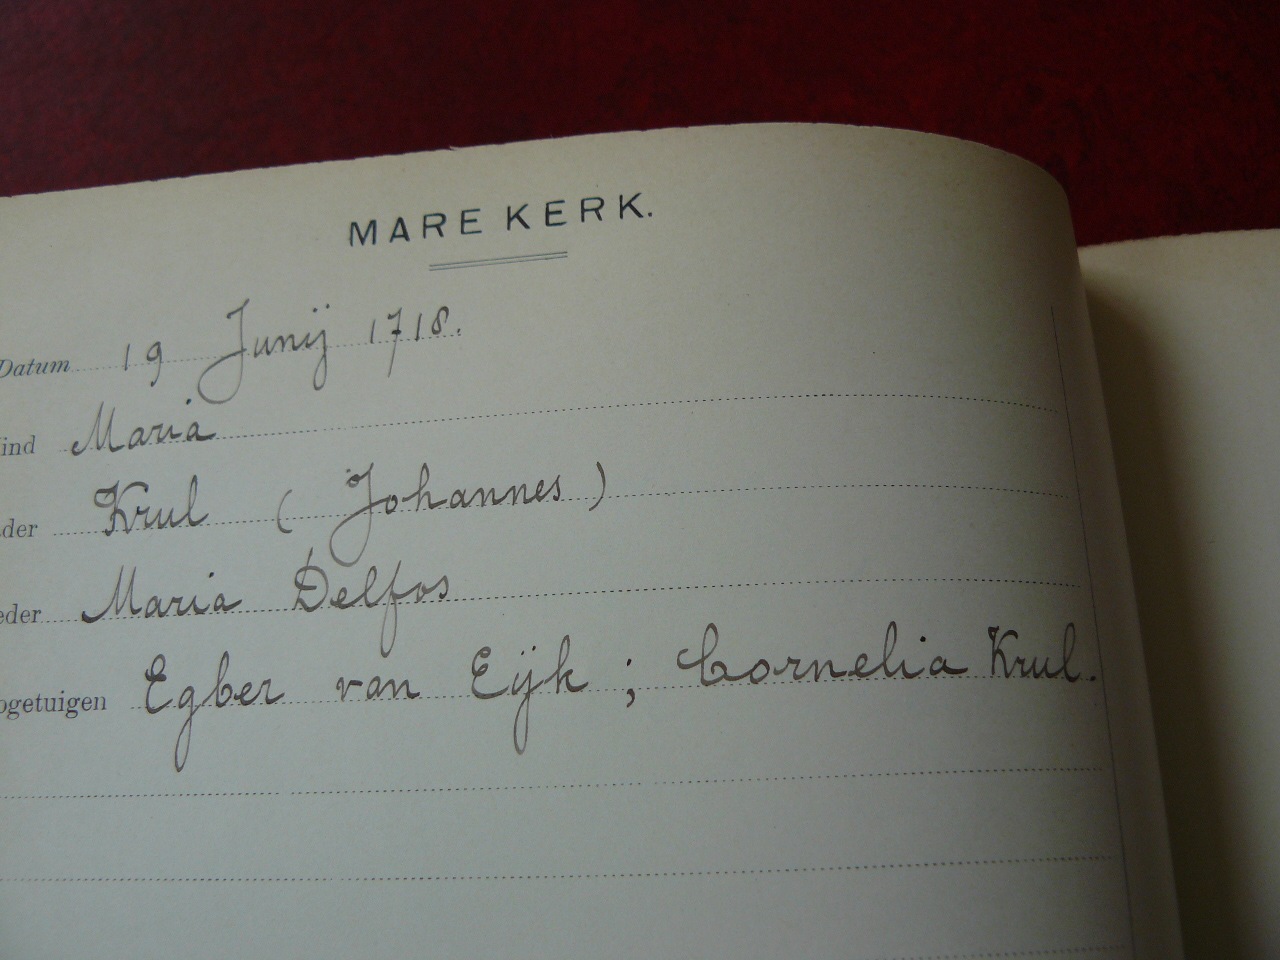 MARE KERK.
Datum 19 Junij 1718.
ind Maria
der Krul (Johannes)
eder Maria Delfos
ogetuigen Egber van Eijk ; Cornelia Krul.